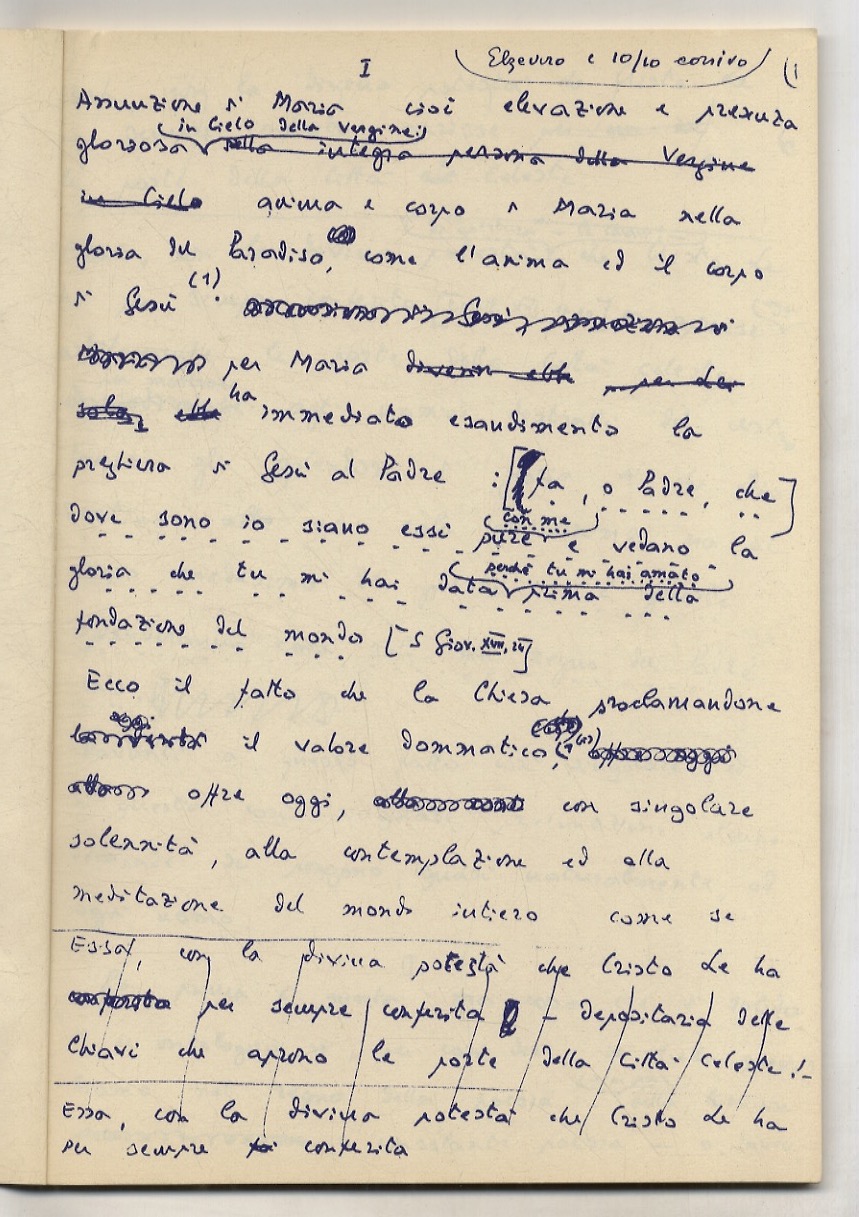 Elzeviro c 10/10 corsivo (1
I
Assunzione di Maria cioè elevazione e presenza
in Cielo della Vergine:
gloriosa nella integra persona della Vergine
in Cielo anima e corpo di Maria nella
gloria del Paradiso, come l'anima ed il corpo
di Gesù (1).
per Maria per dei
sola, ebbe ha immediato esaudimento la
preghiera di Gesù al Padre : [fa, o Padre, che]
con me
dove sono io siano essi pure e vedano la
perché tu mi hai amato
gloria che tu mi hai data prima della
fondazione del mondo [S Giov. XVII, 24]
Ecco il fatto che la Chiesa, proclamandone
oggi
il valore dommatico,
offre oggi, con singolare
solennità, alla contemplazione ed alla
meditazione del mondo intiero come se
Essa, con la divina potestà che Cristo Le ha
per sempre conferita - depositaria delle
Chiavi che aprono le porte della Città Celeste! -
Essa, con la divina potestà che Cristo Le ha
per sempre conferita